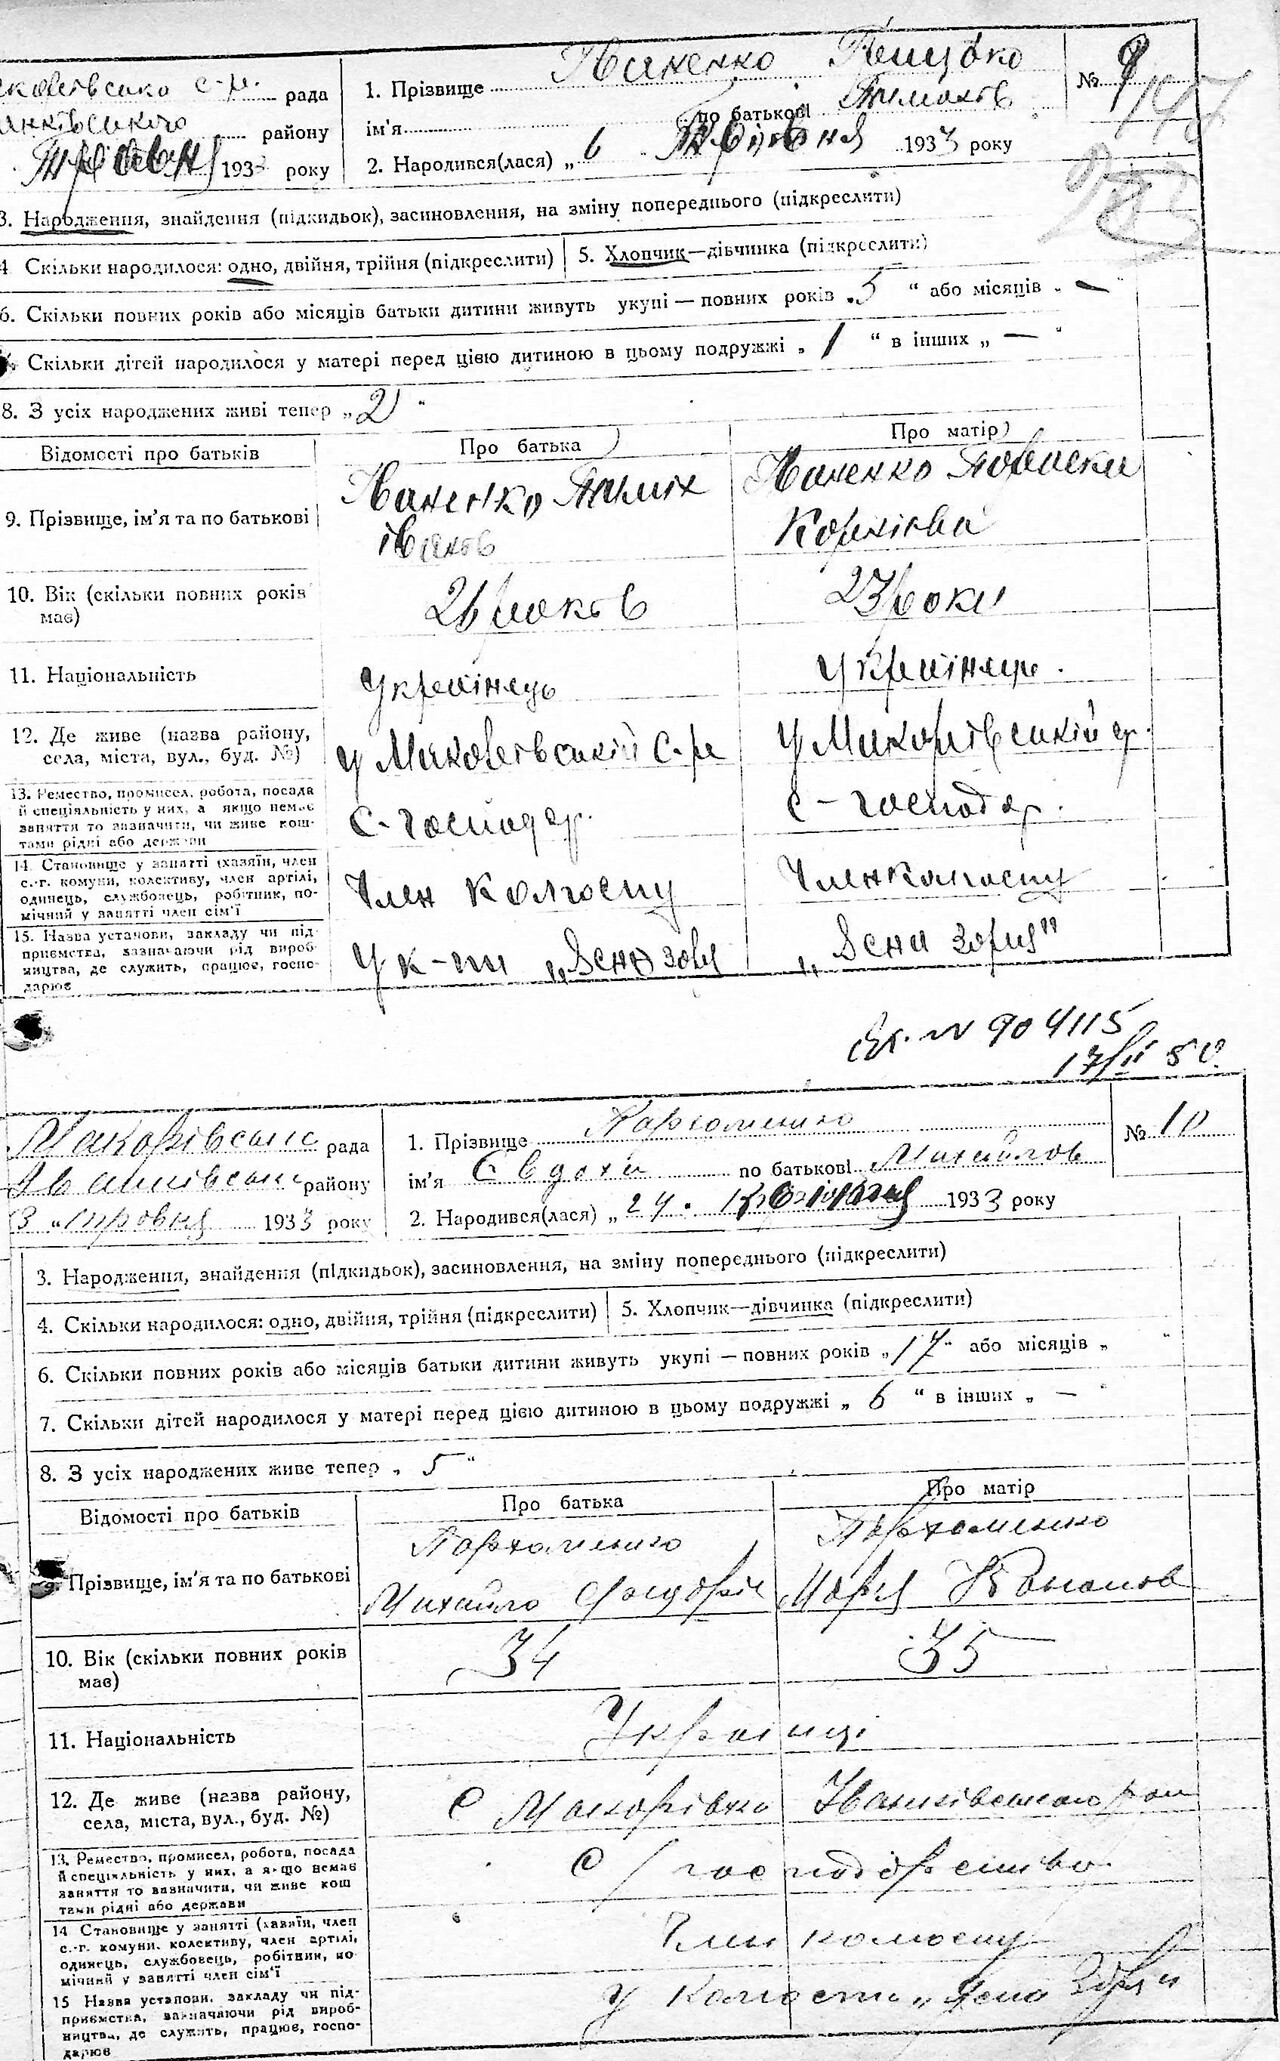 с-р. рада
району
Травня 1933 року
1. Прізвище Іваненко
ім'я по батькові Тимохів
2. Народився(лася) „ 6 Травня 1933 року
№ 9
3. Народження, знайдення (підкидьок), засиновлення, на зміну попереднього (підкреслити)
4 Скільки народилося: одно, двійня, трійня (підкреслити)
5. Хлопчик—дівчинка (підкреслити)
6. Скільки повних років або місяців батьки дитини живуть укупі — повних років „ 5 “ або місяців „ — “
Скільки дітей народилося у матері перед цією дитиною в цьому подружжі „ 1 “ в інших „ — “
8. З усіх народжених живі тепер „ 2 “
Відомості про батьків
Про батька
Про матір
9. Прізвище, ім'я та по батькові
Іваненко Тимох
Іванів
Іваненко
Корнієва
10. Вік (скільки повних років має)
26 років
23 роки
11. Національність
Українець
Українець.
12. Де живе (назва району, села, міста, вул., буд. №)
у Макорівській с-р
у Макорівській ср.
13. Ремество, промисел, робота, посада й спеціяльність у них, а якщо немає заняття то зазначити, чи живе коштами рідні або держави
с-господар.
с-господар.
14. Становище у занятті (хазяїн, член с.-г. комуни, колективу, член артілі, одинець, службовець, робітник, помічний у занятті член сім'ї
Член колгоспу
Член колгоспу
15. Назва установи, закладу чи підприємства, зазначаючи рід виробництва, де служить, працює, господарює
у к-пи „Ясна зоря
„ Ясна Зоря"
N 904115
17/II 50.
Макорівськ рада
Іванківськ району
3 „ травня 1933 року
1. Прізвище Пархоменко
ім'я Євдоха по батькові Михайлов
2. Народився(лася) „ 24. 1933 року
№ 10
3. Народження, знайдення (підкидьок), засиновлення, на зміну попереднього (підкреслити)
4. Скільки народилося: одно, двійня, трійня (підкреслити)
5. Хлопчик—дівчинка (підкреслити)
6. Скільки повних років або місяців батьки дитини живуть укупі — повних років „ 17 “ або місяців „ “
7. Скільки дітей народилося у матері перед цією дитиною в цьому подружжі „ 6 “ в інших „ — “
8. З усіх народжених живе тепер „ 5 “
Відомості про батьків
Про батька
Про матір
9. Прізвище, ім'я та по батькові
Пархоменко
Михайло
Пархоменко
Марія
10. Вік (скільки повних років має)
34
35
11. Національність
Українці
12. Де живе (назва району, села, міста, вул., буд. №)
с Макорівка Іванківського рай
13. Ремество, промисел, робота, посада й спеціяльність у них, а якщо немає заняття то зазначити, чи живе коштами рідні або держави
с/господарство.
14 Становище у занятті (хазяїн, член с.-г. комуни, колективу, член артілі, одинець, службовець, робітник, помічний у занятті член сім'ї
Член колгоспу
15 Назва установи, закладу чи підприємства, зазначаючи рід виробництва, де служить, працює, господарює
у Колгоспи „Ясна Зоря"